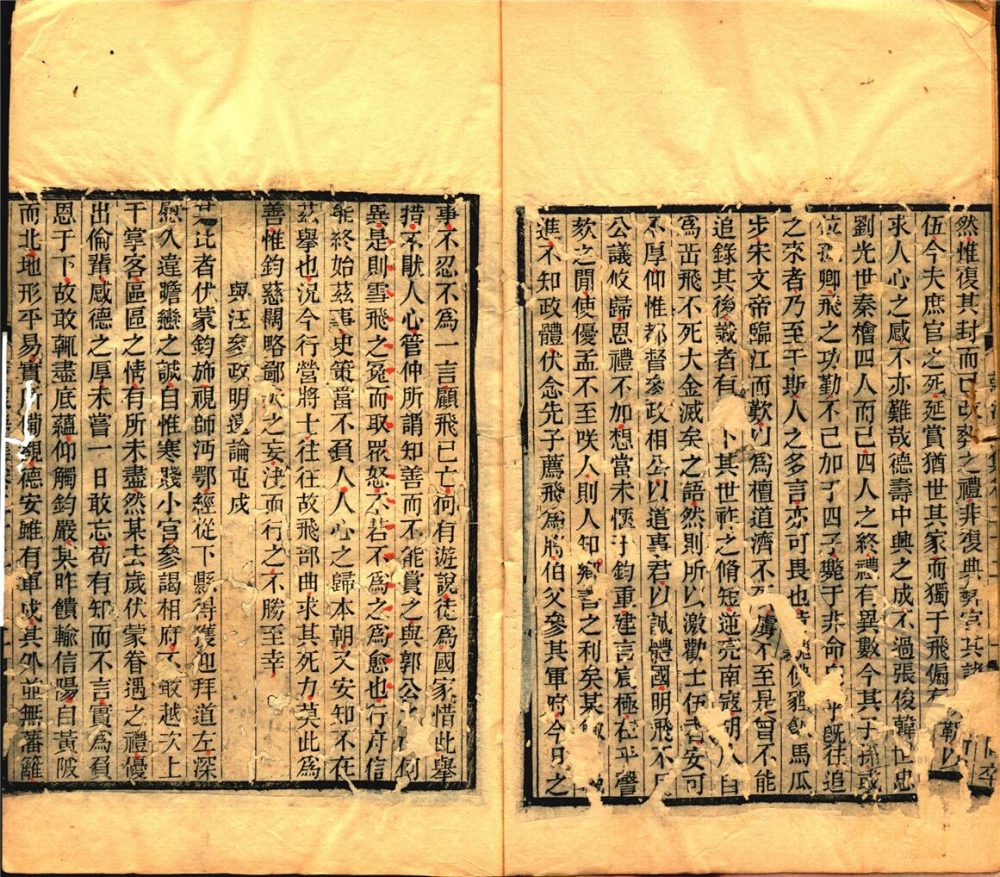 然惟復其封而已改葬之禮非復典契官其諸
伍今夫庶官之死延賞猶世其家而獨于飛偏有靳以
求人心之感不亦難哉德壽中興之成不過張俊韓世忠
劉光世秦檜四人而已四人之終禮有異數今其子孫或
位卿飛之功勤不已加于四子斃于非命平旣往追
之來者乃至于斯人之多言亦可畏也飲馬瓜
步宋文帝臨江而歎以爲檀道濟不死虜不至是曾不能
追錄其後議者有卜其世祚之脩短逆亮南寇胡人自
爲岳飛不死大金滅矣之語然則所以激勸士伍者安可
不厚仰惟都督參政相公以道事君以誠體國明飛不反
公議攸歸恩禮不加想當未愜于鈞重建言宸極在平謦
欬之閒使優孟不至咲人則人知鄉善之利矣某
進不知政體伏念先子薦飛爲將伯父參其軍府今日之
事不忍不爲一言顧飛已亡何有遊說徒爲國家惜此舉
措不猒人心管仲所謂知善而不能賞之與郭公何
異是則雪飛之冤而取衆怒不若不爲之爲愈也行府信
能終始茲事史策當不負人人心之歸本朝又安知不在
茲舉也況今行營將士往往故飛部曲求其死力莫此爲
善惟鈞慈闊略鄙之妄決而行之不勝至幸
與汪參政明遠論屯戍
某比者伏蒙鈞斾視師沔鄂經從下縣得獲迎拜道左深
慰久違瞻戀之誠自惟寒賤小官參謁相府不敢越次上
干掌客區區之情有所未盡然某去歲伏蒙眷遇之禮優
出倫輩感德之厚未嘗一日敢忘苟有知而不言實爲負
恩于下故敢輒盡底蘊仰觸鈞嚴某昨饋輸信陽自黃陂
而北地形平易實觀德安雖有軍戍其外並無藩籬